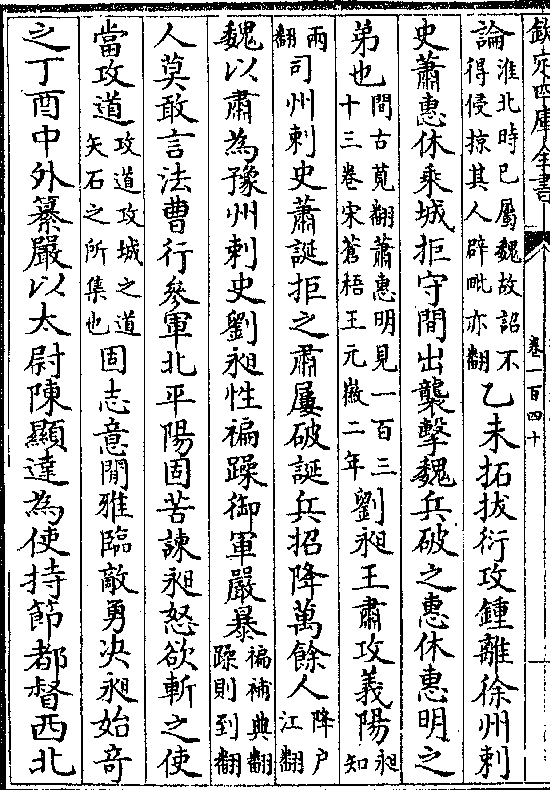 欽定四庫全書 卷一百四十
論淮北時已屬魏故詔不得侵掠其人辟毗亦翻乙未拓拔衍攻鍾離徐州刺
史蕭惠休乘城拒守間出襲擊魏兵破之惠休惠明之
弟也間古莧翻蕭惠明見一百三十三卷宋蒼梧王元徽二年劉昶王肅攻義陽昶知
兩翻司州刺史蕭誕拒之肅屢破誕兵招降萬餘人降户江翻
魏以肅為豫州刺史劉昶性褊躁御軍嚴暴褊補典翻躁則到翻
人莫敢言法曹行參軍北平陽固苦諫昶怒欲斬之使
當攻道攻道攻城之道矢石之所集也固志意閒雅臨敵勇决昶始奇
之丁酉中外纂嚴以太尉陳顯達為使持節都督西北